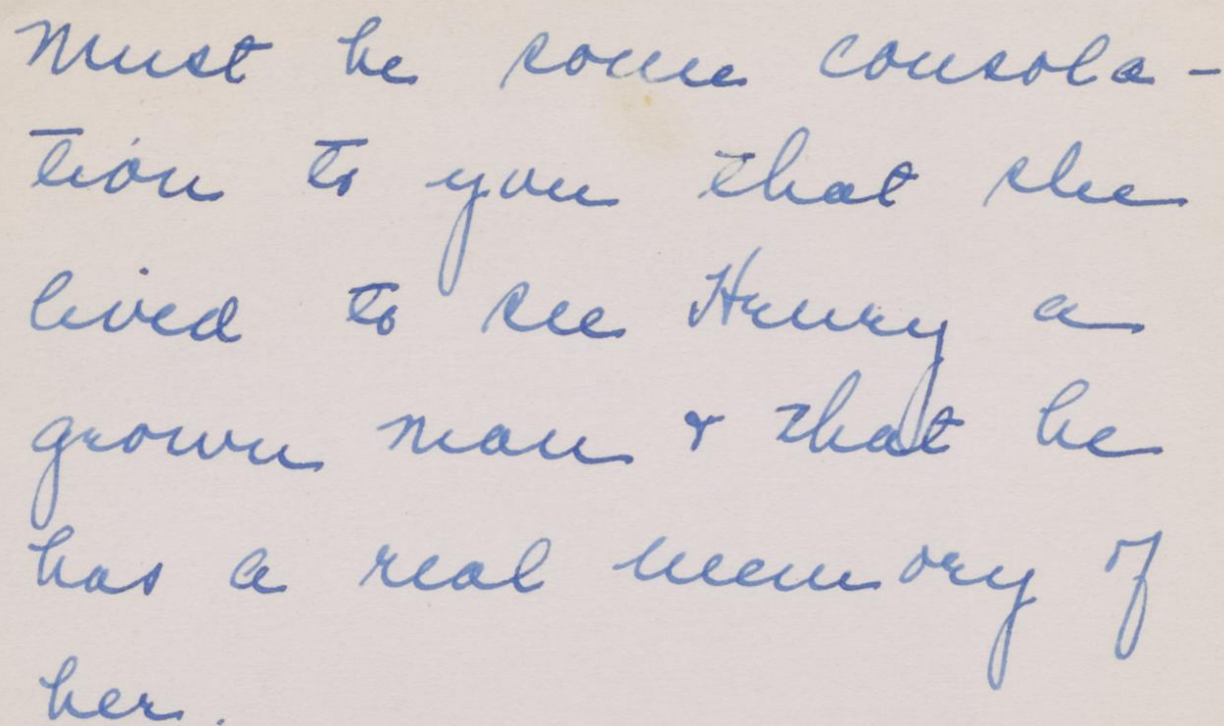 Must be some consola-
tion to you that she
lived to see Henry a
grown man & that he
has a real memory of
her.